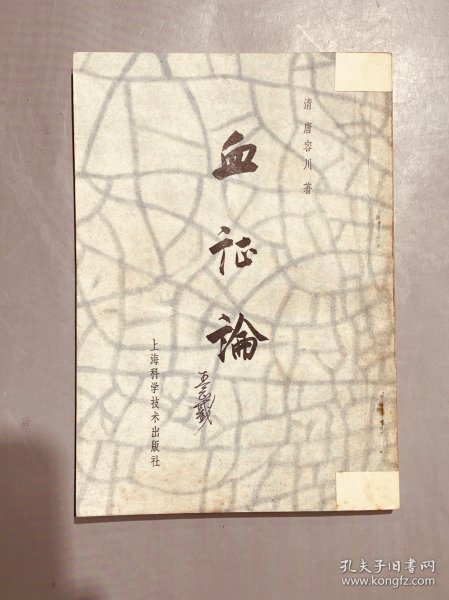 清 唐容川 著
血证論
上海科学技术出版社
孔夫子旧书网
www.kongfz.com